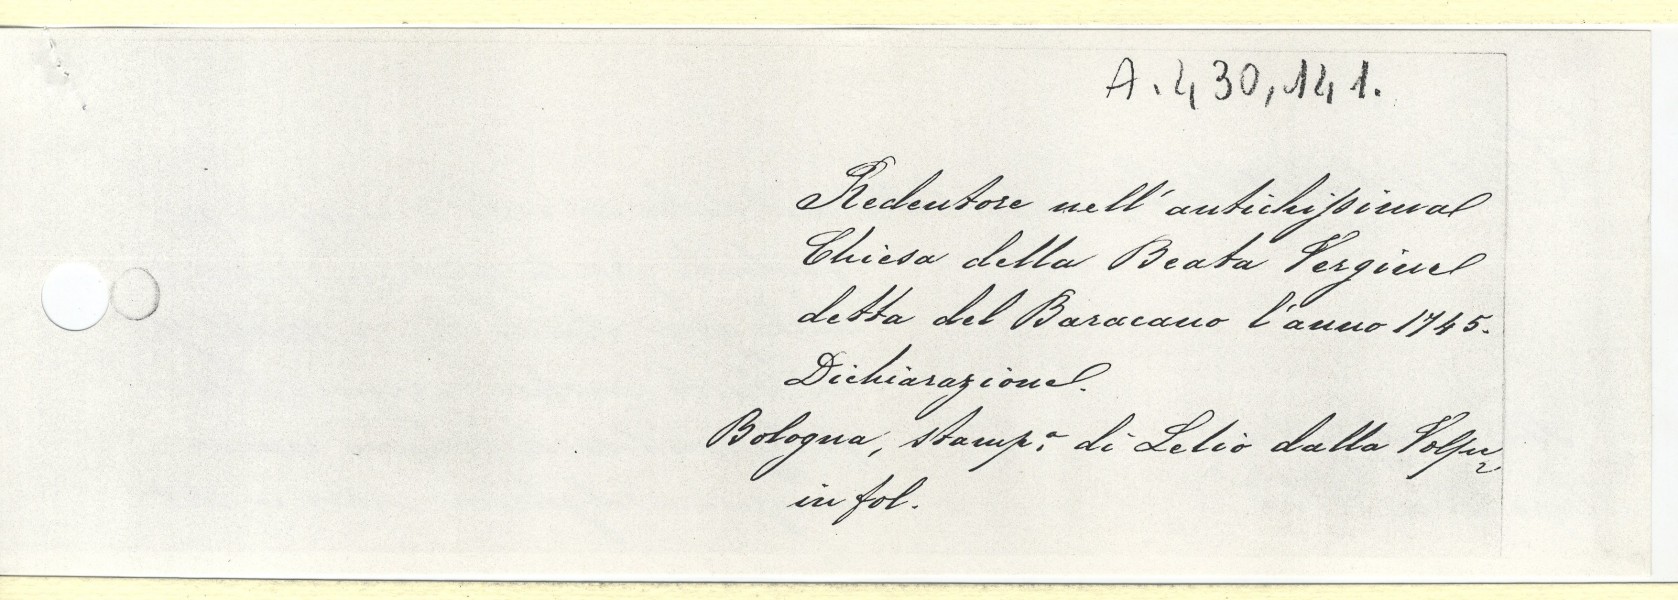 A.430,141.
Redentore nell' antichissima
Chiesa della Beata Vergine
detta del Baracano l'anno 1745.
Dichiarazione.
Bologna, stamp.a di Lelio dalla Volpe,
in fol.